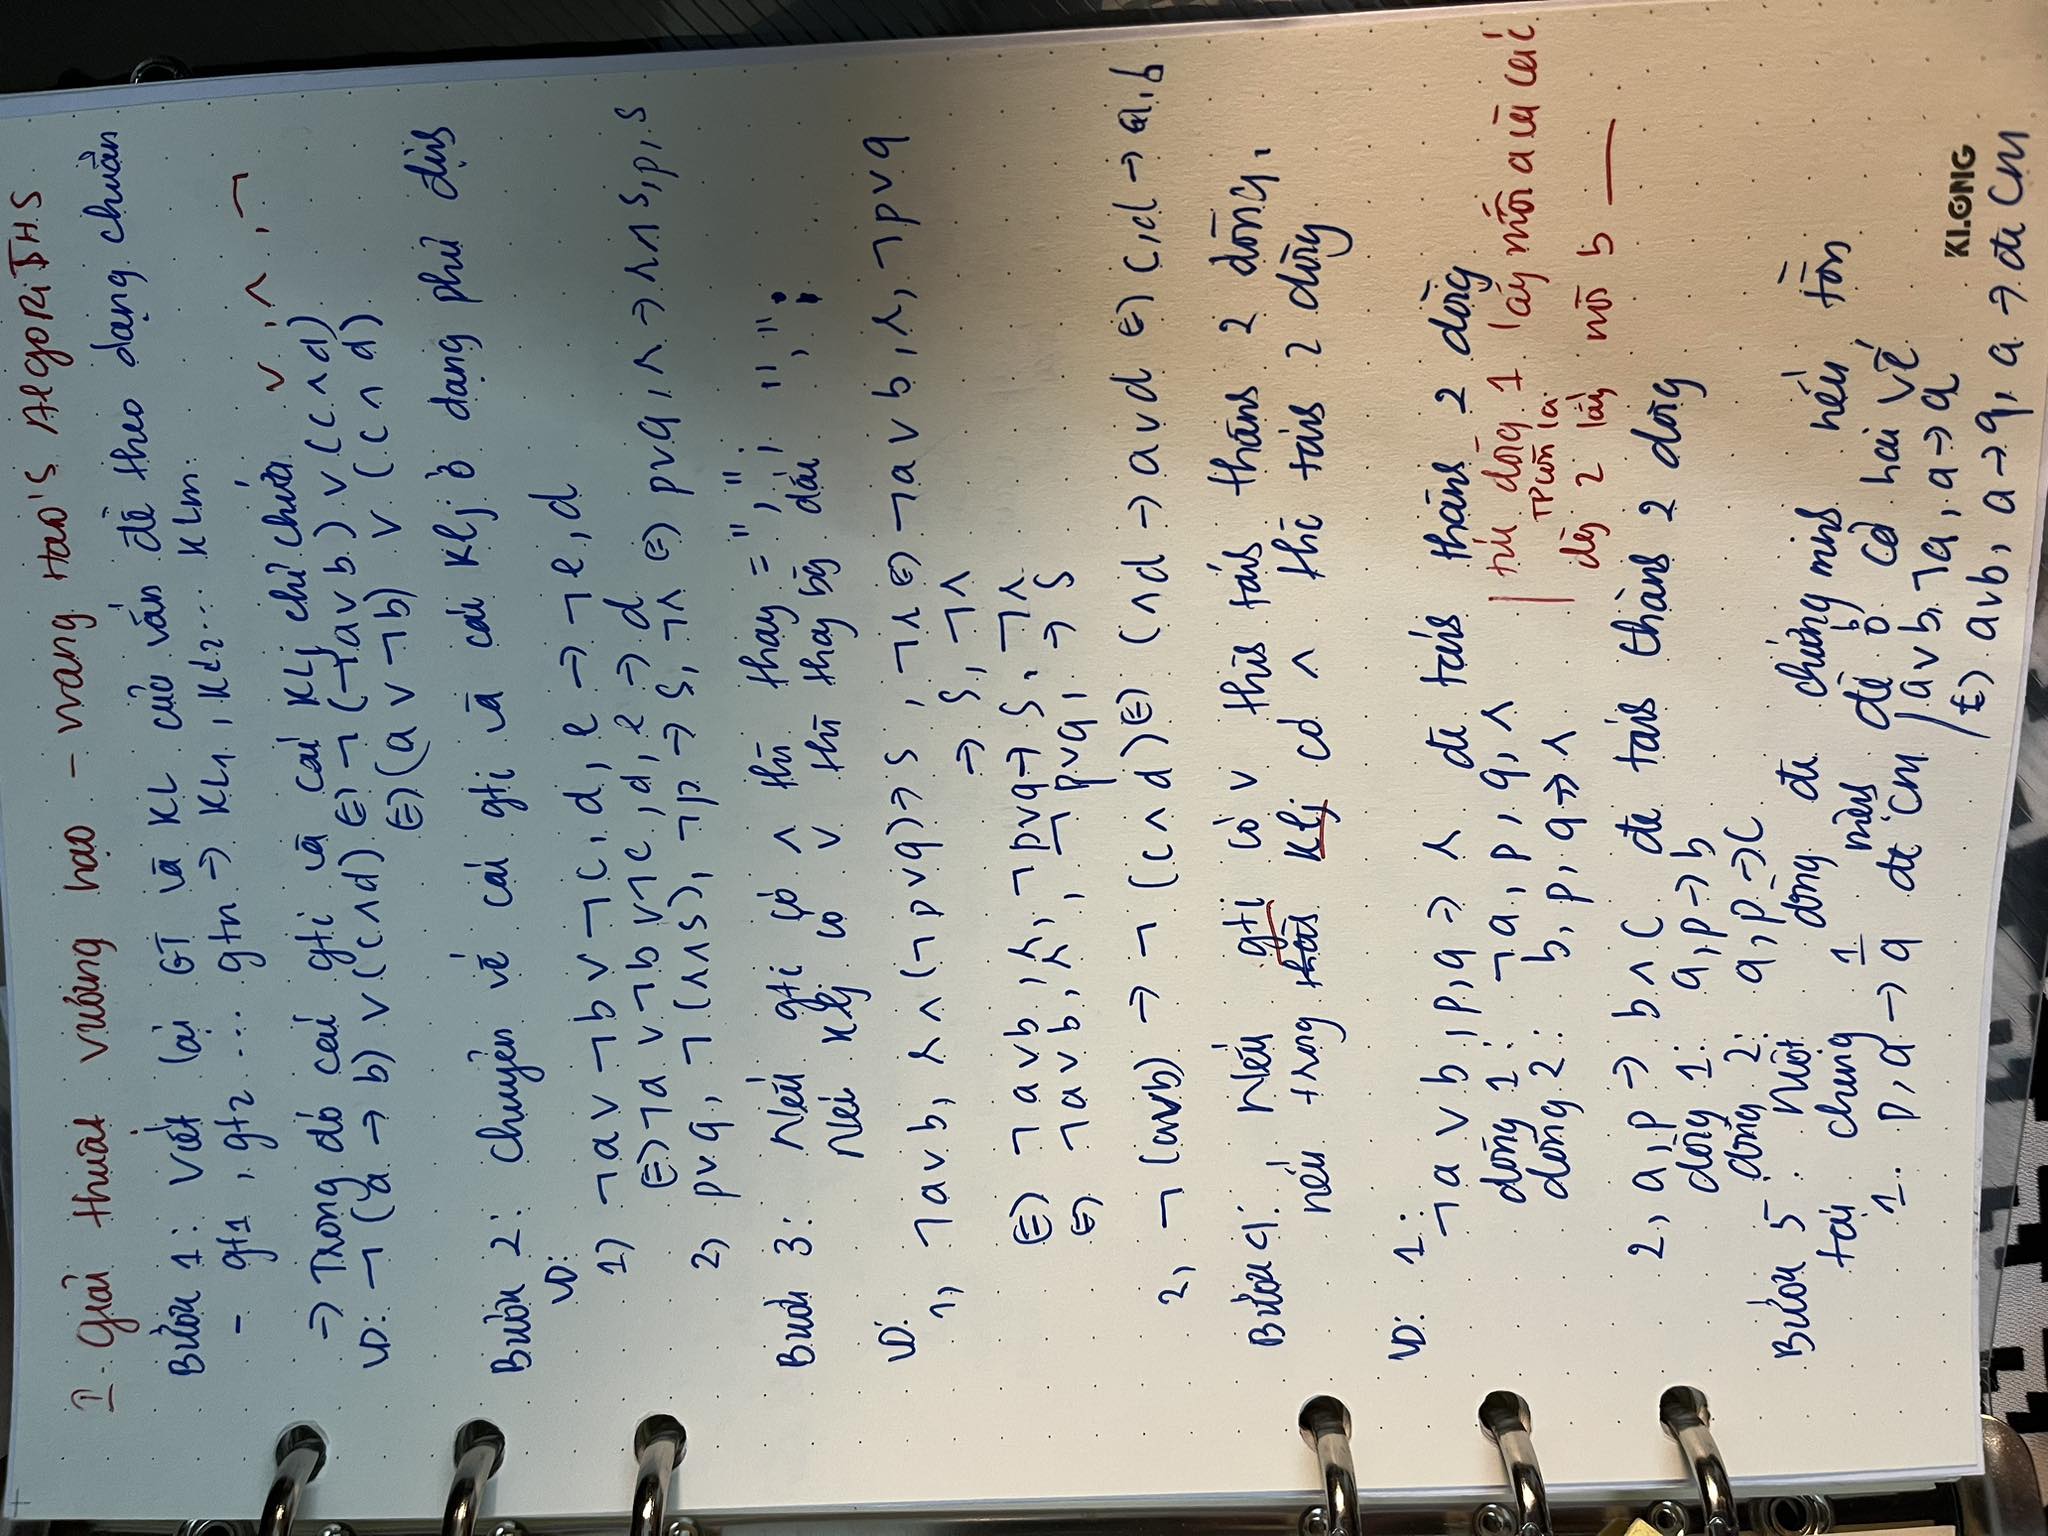 I. Giải thuật vương hạo – Wang Hao's AlgoRiTHS
Bước 1: Viết lại GT và KL của vấn đề theo dạng chuẩn
- gt1, gt2 ... gtn → KL1, KL2... KLm.
→ Trong đó các gti và các KLj chỉ chứa ∨, ∧, ¬
VD: ¬(a → b) ∨ (c ∧ d) ⇔ ¬(¬a ∨ b) ∨ (c ∧ d)
⇔ (a ∨ ¬b) ∨ (c ∧ d)
Bước 2: Chuyển vế các gti và các Klj ở dạng phủ định
VD:
1) ¬a ∨ ¬b ∨ ¬c, d, e → ¬e, d
⇔ ¬a ∨ ¬b ∨ ¬c, d, e → d
2) p ∨ q, ¬(r ∧ s), ¬p → s, ¬r ⇔ p ∨ q, r → r ∧ s, p, s
Bước 3: Nếu gti có ∧ thì thay = ",";
Nếu Klj có ∨ thì thay bằng dấu ",";
VD:
1, ¬a ∨ b, r ∧ (¬p ∨ q) → s, ¬r ⇔ ¬a ∨ b, r, ¬p ∨ q
→ s, ¬r
⇔ ¬a ∨ b, r, ¬p ∨ q → s, ¬r
⇔ ¬a ∨ b, r, ¬p ∨ q, → s
2, ¬(a ∨ b) → ¬(c ∧ d) ⇔ c ∧ d → a ∨ d ⇔ c, d → a, b
Bước 4:, Nếu gti có ∨ thì tách thành 2 dòng.
nếu trong Klj có ∧ thì tách 2 dòng
VD: 1:
¬a ∨ b, p, q → r đc tách thành 2 dòng
dòng 1: ¬a, p, q, r | tức dòng 1 lấy mỗi a và các
TP còn lại
dòng 2: b, p, q → r dòng 2 lấy mỗi b ___
2, a, p → b ∧ c đc tách thành 2 dòng
dòng 1: a, p → b
dòng 2: a, p → c
Bước 5: Một dòng đc chứng minh nếu tồn
tại chung 1 mệnh đề ở cả hai vế
1. p, a → a đc cm | a ∨ b, ¬a, a → a
⇔ a ∨ b, a → a, a → đc cm
KLONG